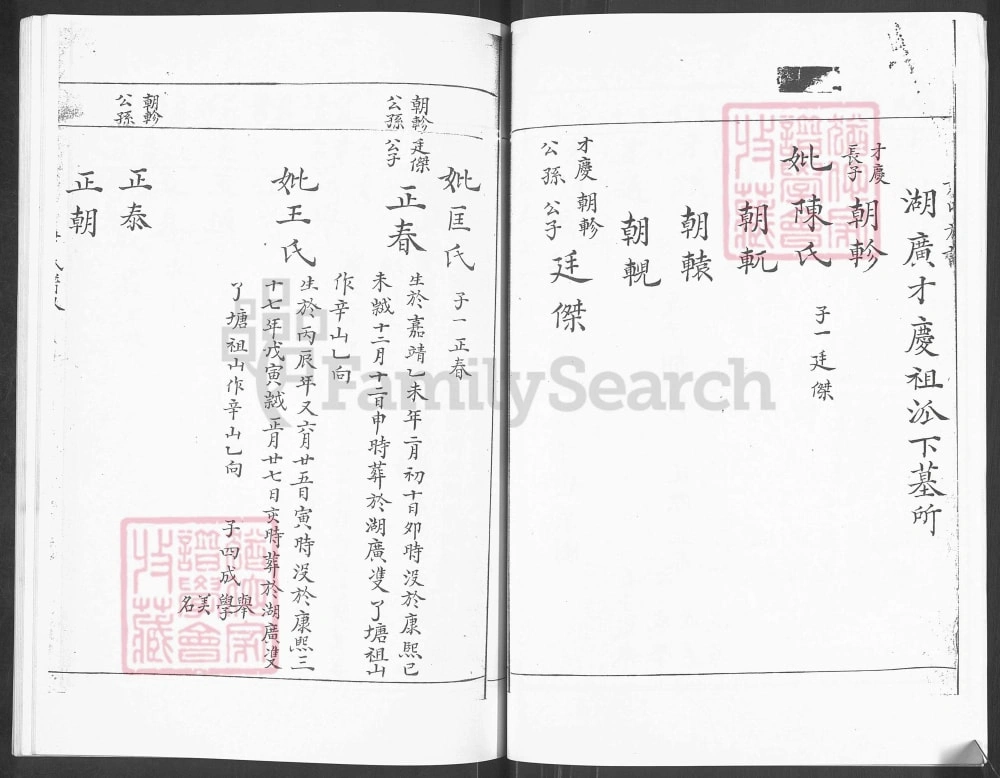 湖廣才慶祖派下墓所
才慶
長子
朝軫
妣陳氏
子一廷傑
朝軏
朝轅
朝輗
才慶朝軫
公孫公子
廷傑
妣匡氏
子一正春
朝軫廷傑
公孫公子
正春
生於嘉靖乙未年二月初十日卯時沒於康熙已
未歲十二月十二日申時葬於湖廣雙了塘祖山
作辛山乚向
妣王氏
生於丙辰年又六月廿五日寅時没於康熙三
十七年戊寅歲正月廿七日亥時葬於湖廣雙
了塘祖山作辛山乚向
子四成舉
學美名
朝軫
公孫
正泰
正朝
FamilySearch
譜學會
收藏
譜學會
收藏